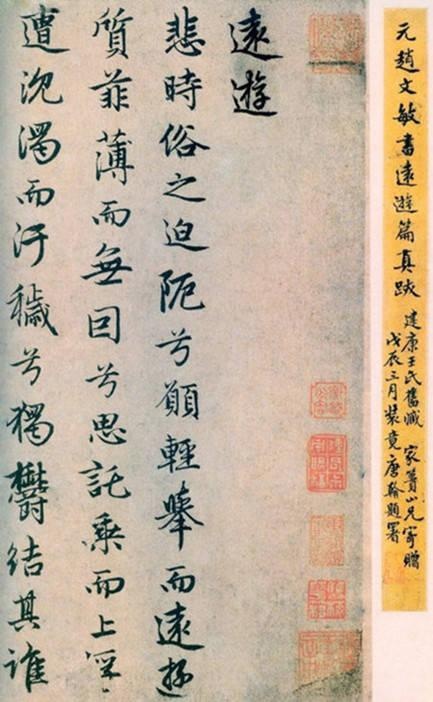 元趙文敏書遠遊篇真跡
建康王氏舊藏 家蕢山兄寄贈
戊辰三月裝竟唐翰題署
遠遊
悲時俗之迫阨兮願輕舉而遠遊
質菲薄而無因兮思託乘而上浮
遭沈濁而汙穢兮獨鬱結其誰